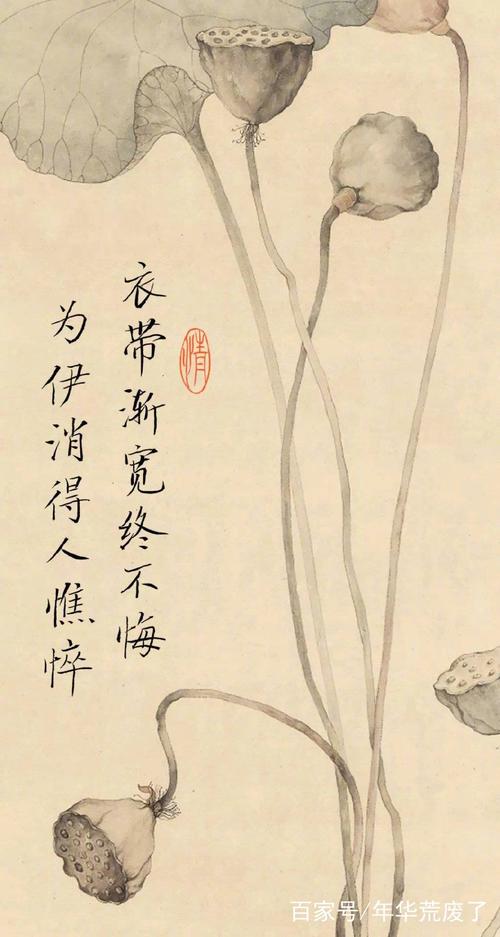 衣带渐宽终不悔
为伊消得人憔悴
情
百家号/年华荒废了